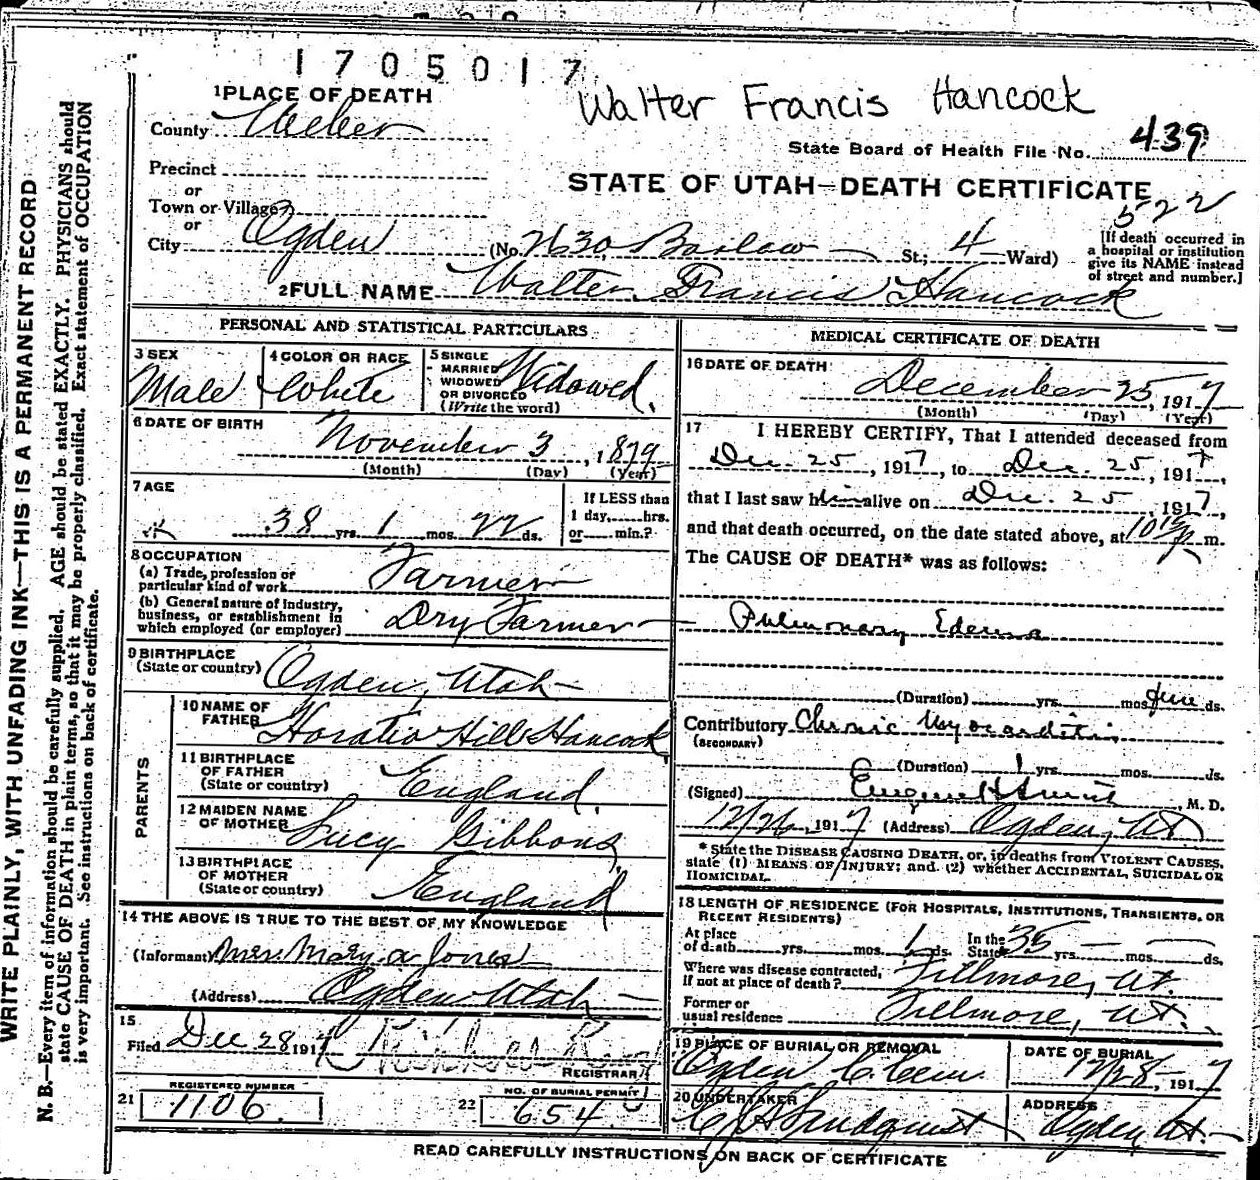 1705017
Walter Francis Hancock
1 PLACE OF DEATH
County Weber
State Board of Health File No. 439
Precinct
or
STATE OF UTAH—DEATH CERTIFICATE
522
Town or Village
or
City Ogden (No. 2630, Barlow St.; 4 Ward)
[If death occurred in
a hospital or institution
give its NAME instead
of street and number.]
2 FULL NAME Walter Francis Hancock
PERSONAL AND STATISTICAL PARTICULARS
3 SEX
Male
4 COLOR OR RACE
White
5 SINGLE
MARRIED
WIDOWED
OR DIVORCED
(Write the word)
Widowed.
6 DATE OF BIRTH
November 3, 1879
(Month) (Day) (Year)
7 AGE
38 yrs. 1 mos. 22 ds.
If LESS than
1 day, hrs.
or min.?
8 OCCUPATION
(a) Trade, profession or
particular kind of work Farmer
(b) General nature of industry,
business, or establishment in
which employed (or employer) Dry Farmer
9 BIRTHPLACE
(State or country) Ogden, Utah
PARENTS
10 NAME OF
FATHER Horatio Hill Hancock
11 BIRTHPLACE
OF FATHER
(State or country) England.
12 MAIDEN NAME
OF MOTHER Lucy Gibbons
13 BIRTHPLACE
OF MOTHER
(State or country) England
14 THE ABOVE IS TRUE TO THE BEST OF MY KNOWLEDGE
(Informant) Mrs. Mary A Jones
(Address) Ogden Utah
15
Filed Dec 28 1917
REGISTRAR
REGISTERED NUMBER
21 1106.
NO. OF BURIAL PERMIT
22 654
MEDICAL CERTIFICATE OF DEATH
16 DATE OF DEATH
December 25, 1917
(Month) (Day) (Year)
17 I HEREBY CERTIFY, That I attended deceased from
Dec. 25, 1917, to Dec. 25 1917,
that I last saw him alive on Dec. 25, 1917,
and that death occurred, on the date stated above, at 10 15 P m.
The CAUSE OF DEATH* was as follows:
Pulmonary Edema
(Duration) yrs. mos. ds.
Contributory Chronic Myocarditis
(SECONDARY)
(Duration) 1 yrs. mos. ds.
(Signed) Eugene H Smith, M. D.
12/26, 1917 (Address) Ogden, Ut
* State the DISEASE CAUSING DEATH, or, in deaths from VIOLENT CAUSES,
state (1) MEANS OF INJURY; and (2) whether ACCIDENTAL, SUICIDAL OR
HOMICIDAL.
18 LENGTH OF RESIDENCE (FOR HOSPITALS, INSTITUTIONS, TRANSIENTS, OR
RECENT RESIDENTS)
At place
of death yrs. mos. 1 ds. In the
State 35 yrs. mos. ds.
Where was disease contracted,
if not at place of death? Fillmore, Ut.
Former or
usual residence Fillmore, Ut.
19 PLACE OF BURIAL OR REMOVAL
Ogden C. Cem.
DATE OF BURIAL
12/28, 1917
20 UNDERTAKER
C J A Lindquist
ADDRESS
Ogden, Ut.
READ CAREFULLY INSTRUCTIONS ON BACK OF CERTIFICATE
WRITE PLAINLY, WITH UNFADING INK—THIS IS A PERMANENT RECORD
N. B.—Every item of information should be carefully supplied. AGE should be stated EXACTLY. PHYSICIANS should
state CAUSE OF DEATH in plain terms, so that it may be properly classified. Exact statement of OCCUPATION
is very important. See instructions on back of certificate.